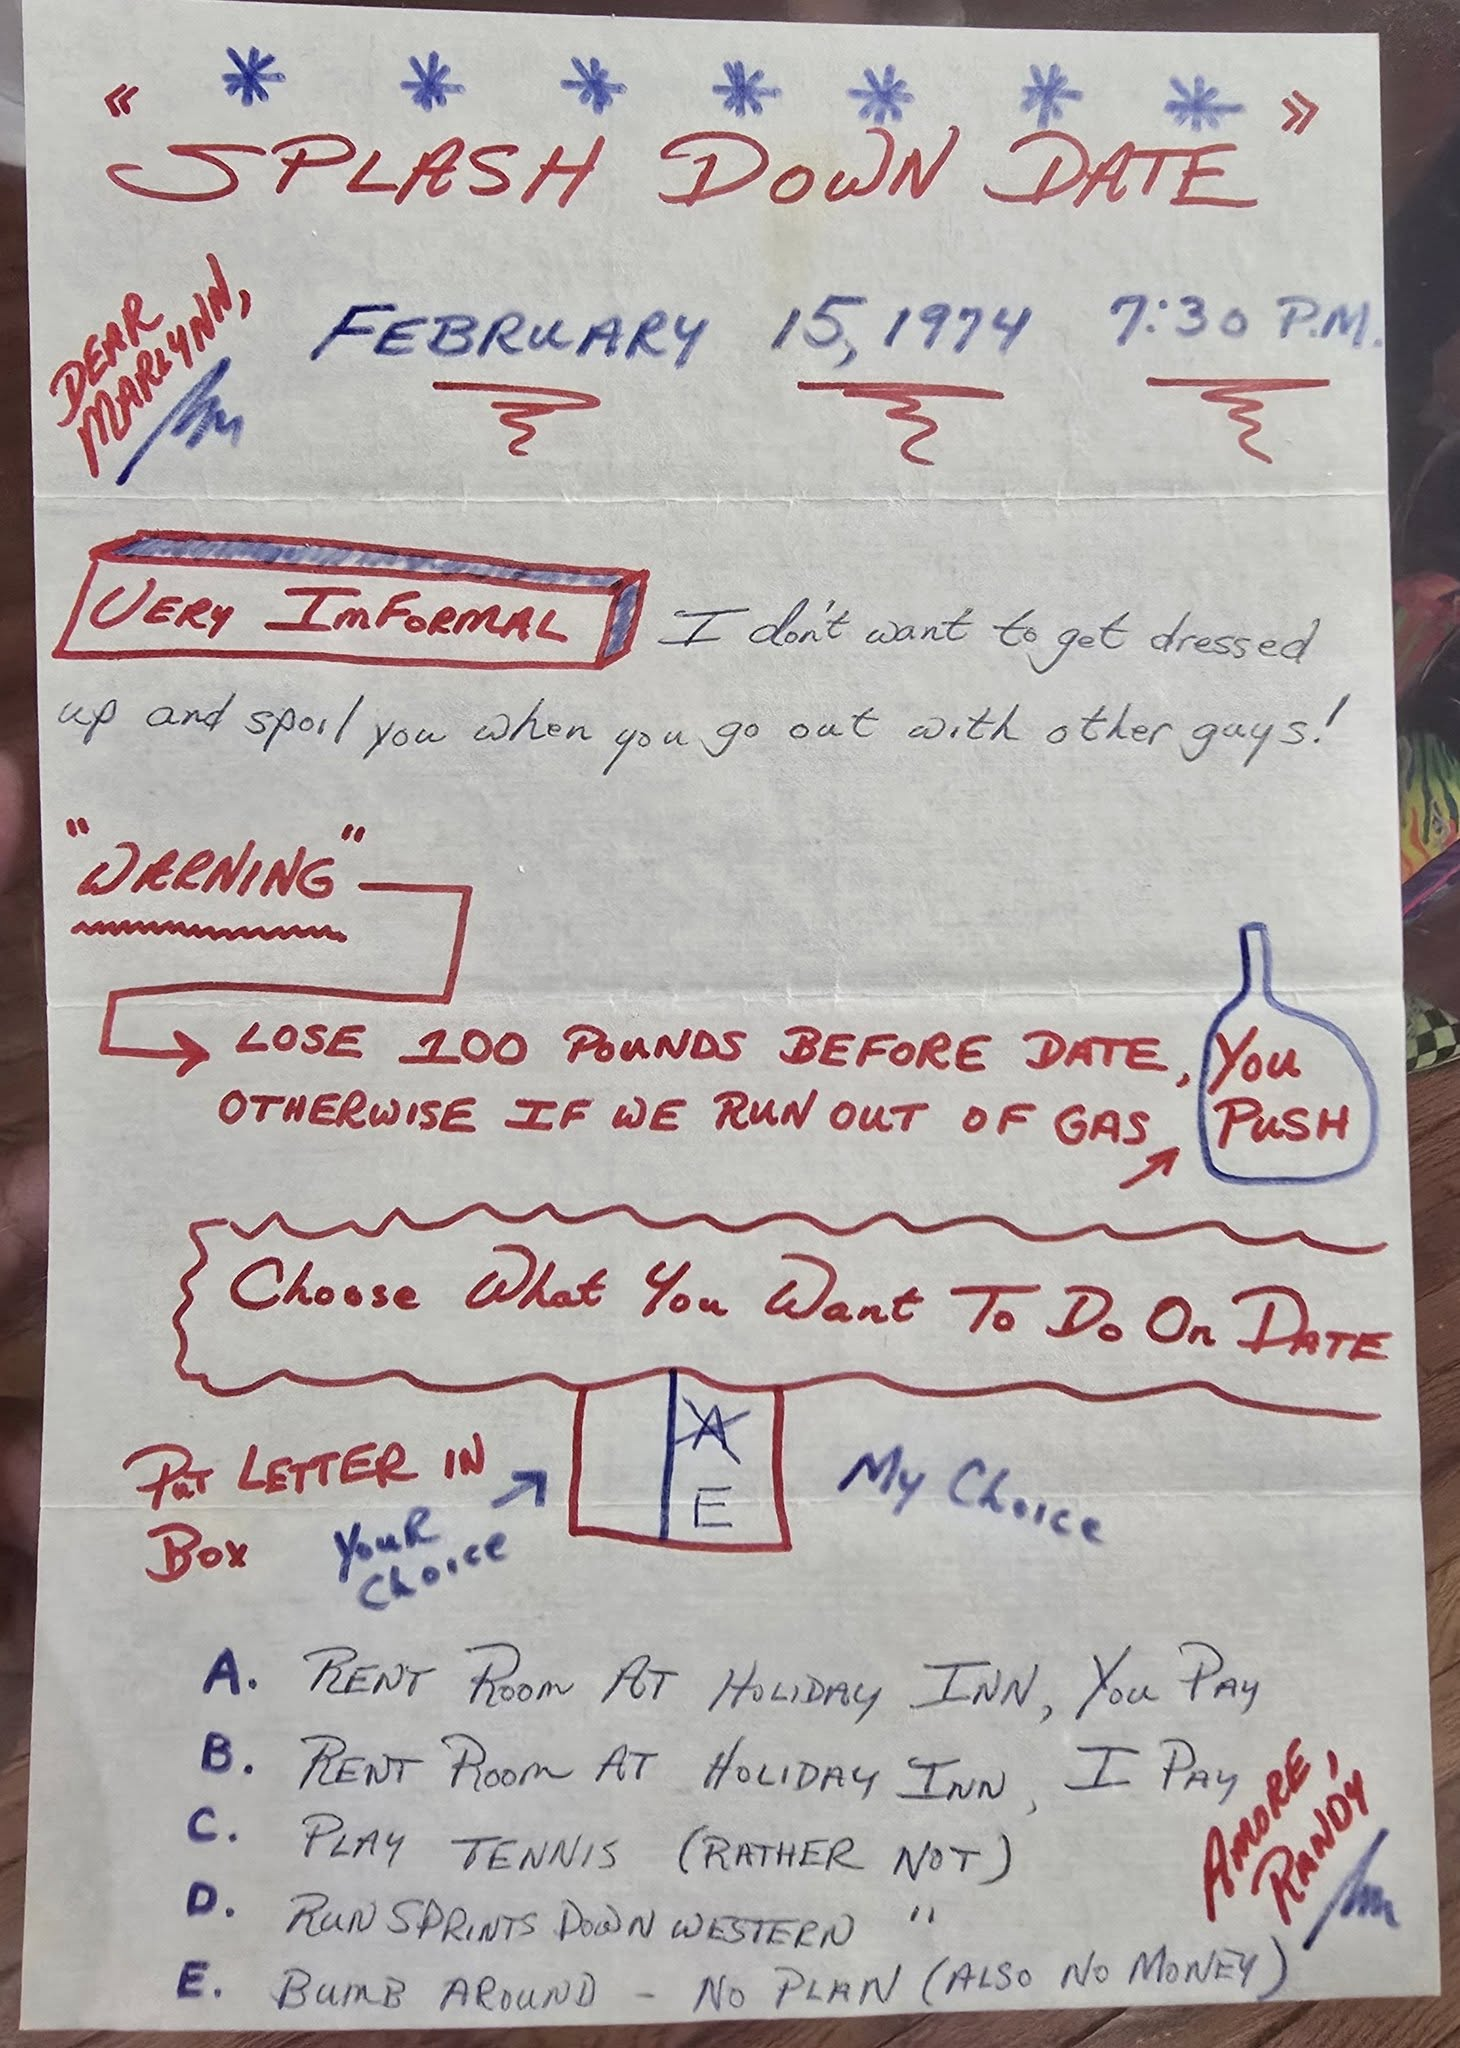 « * * * * * * * »
SPLASH DOWN DATE
DEAR
MARLYNN,
FEBRUARY 15, 1974 7:30 P.M.
VERY IMFORMAL I don't want to get dressed
up and spoil you when you go out with other guys!
"WARNING"
LOSE 100 POUNDS BEFORE DATE, YOU
OTHERWISE IF WE RUN OUT OF GAS PUSH
Choose What You Want To Do On DATE
Put LETTER IN
Box
YOUR
Choice
A
E
My Choice
A. RENT ROOM AT HOLIDAY INN, YOU PAY
B. RENT ROOM AT HOLIDAY INN, I PAY
C. PLAY TENNIS (RATHER NOT)
D. RUN SPRINTS DOWN WESTERN "
E. BUMB AROUND - NO PLAN (ALSO NO MONEY)
AMORE,
RANDY